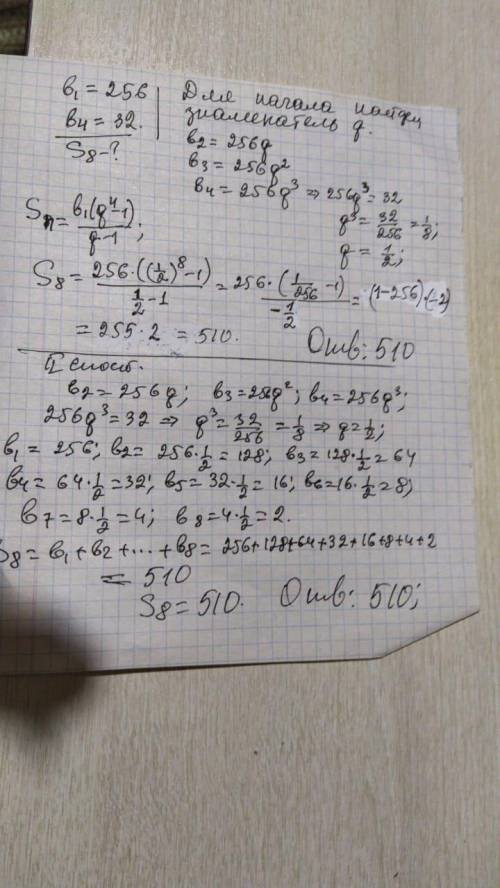 b₁ = 256
b₄ = 32.
S₈ - ?
Для начала найдём
знаменатель q.
b₂ = 256q
b₃ = 256q²
b₄ = 256q³ ⇒ 256q³ = 32
q³ = 32/256 = 1/8;
q = 1/2;
Sₙ = b₁(q⁴-1)/(q-1);
S₈ = 256·((1/2)⁸-1)/(1/2-1) = 256·(1/256-1)/(-1/2) = (1-256)·(-2)
= 255·2 = 510.
Отв: 510
II способ.
b₂ = 256q; b₃ = 256q²; b₄ = 256q³;
256q³ = 32 ⇒ q³ = 32/256 = 1/8 ⇒ q = 1/2;
b₁ = 256; b₂ = 256·1/2 = 128; b₃ = 128·1/2 = 64
b₄ = 64·1/2 = 32; b₅ = 32·1/2 = 16; b₆ = 16·1/2 = 8;
b₇ = 8·1/2 = 4; b₈ = 4·1/2 = 2.
S₈ = b₁ + b₂ + ... + b₈ = 256+128+64+32+16+8+4+2
= 510
S₈ = 510. Отв: 510;